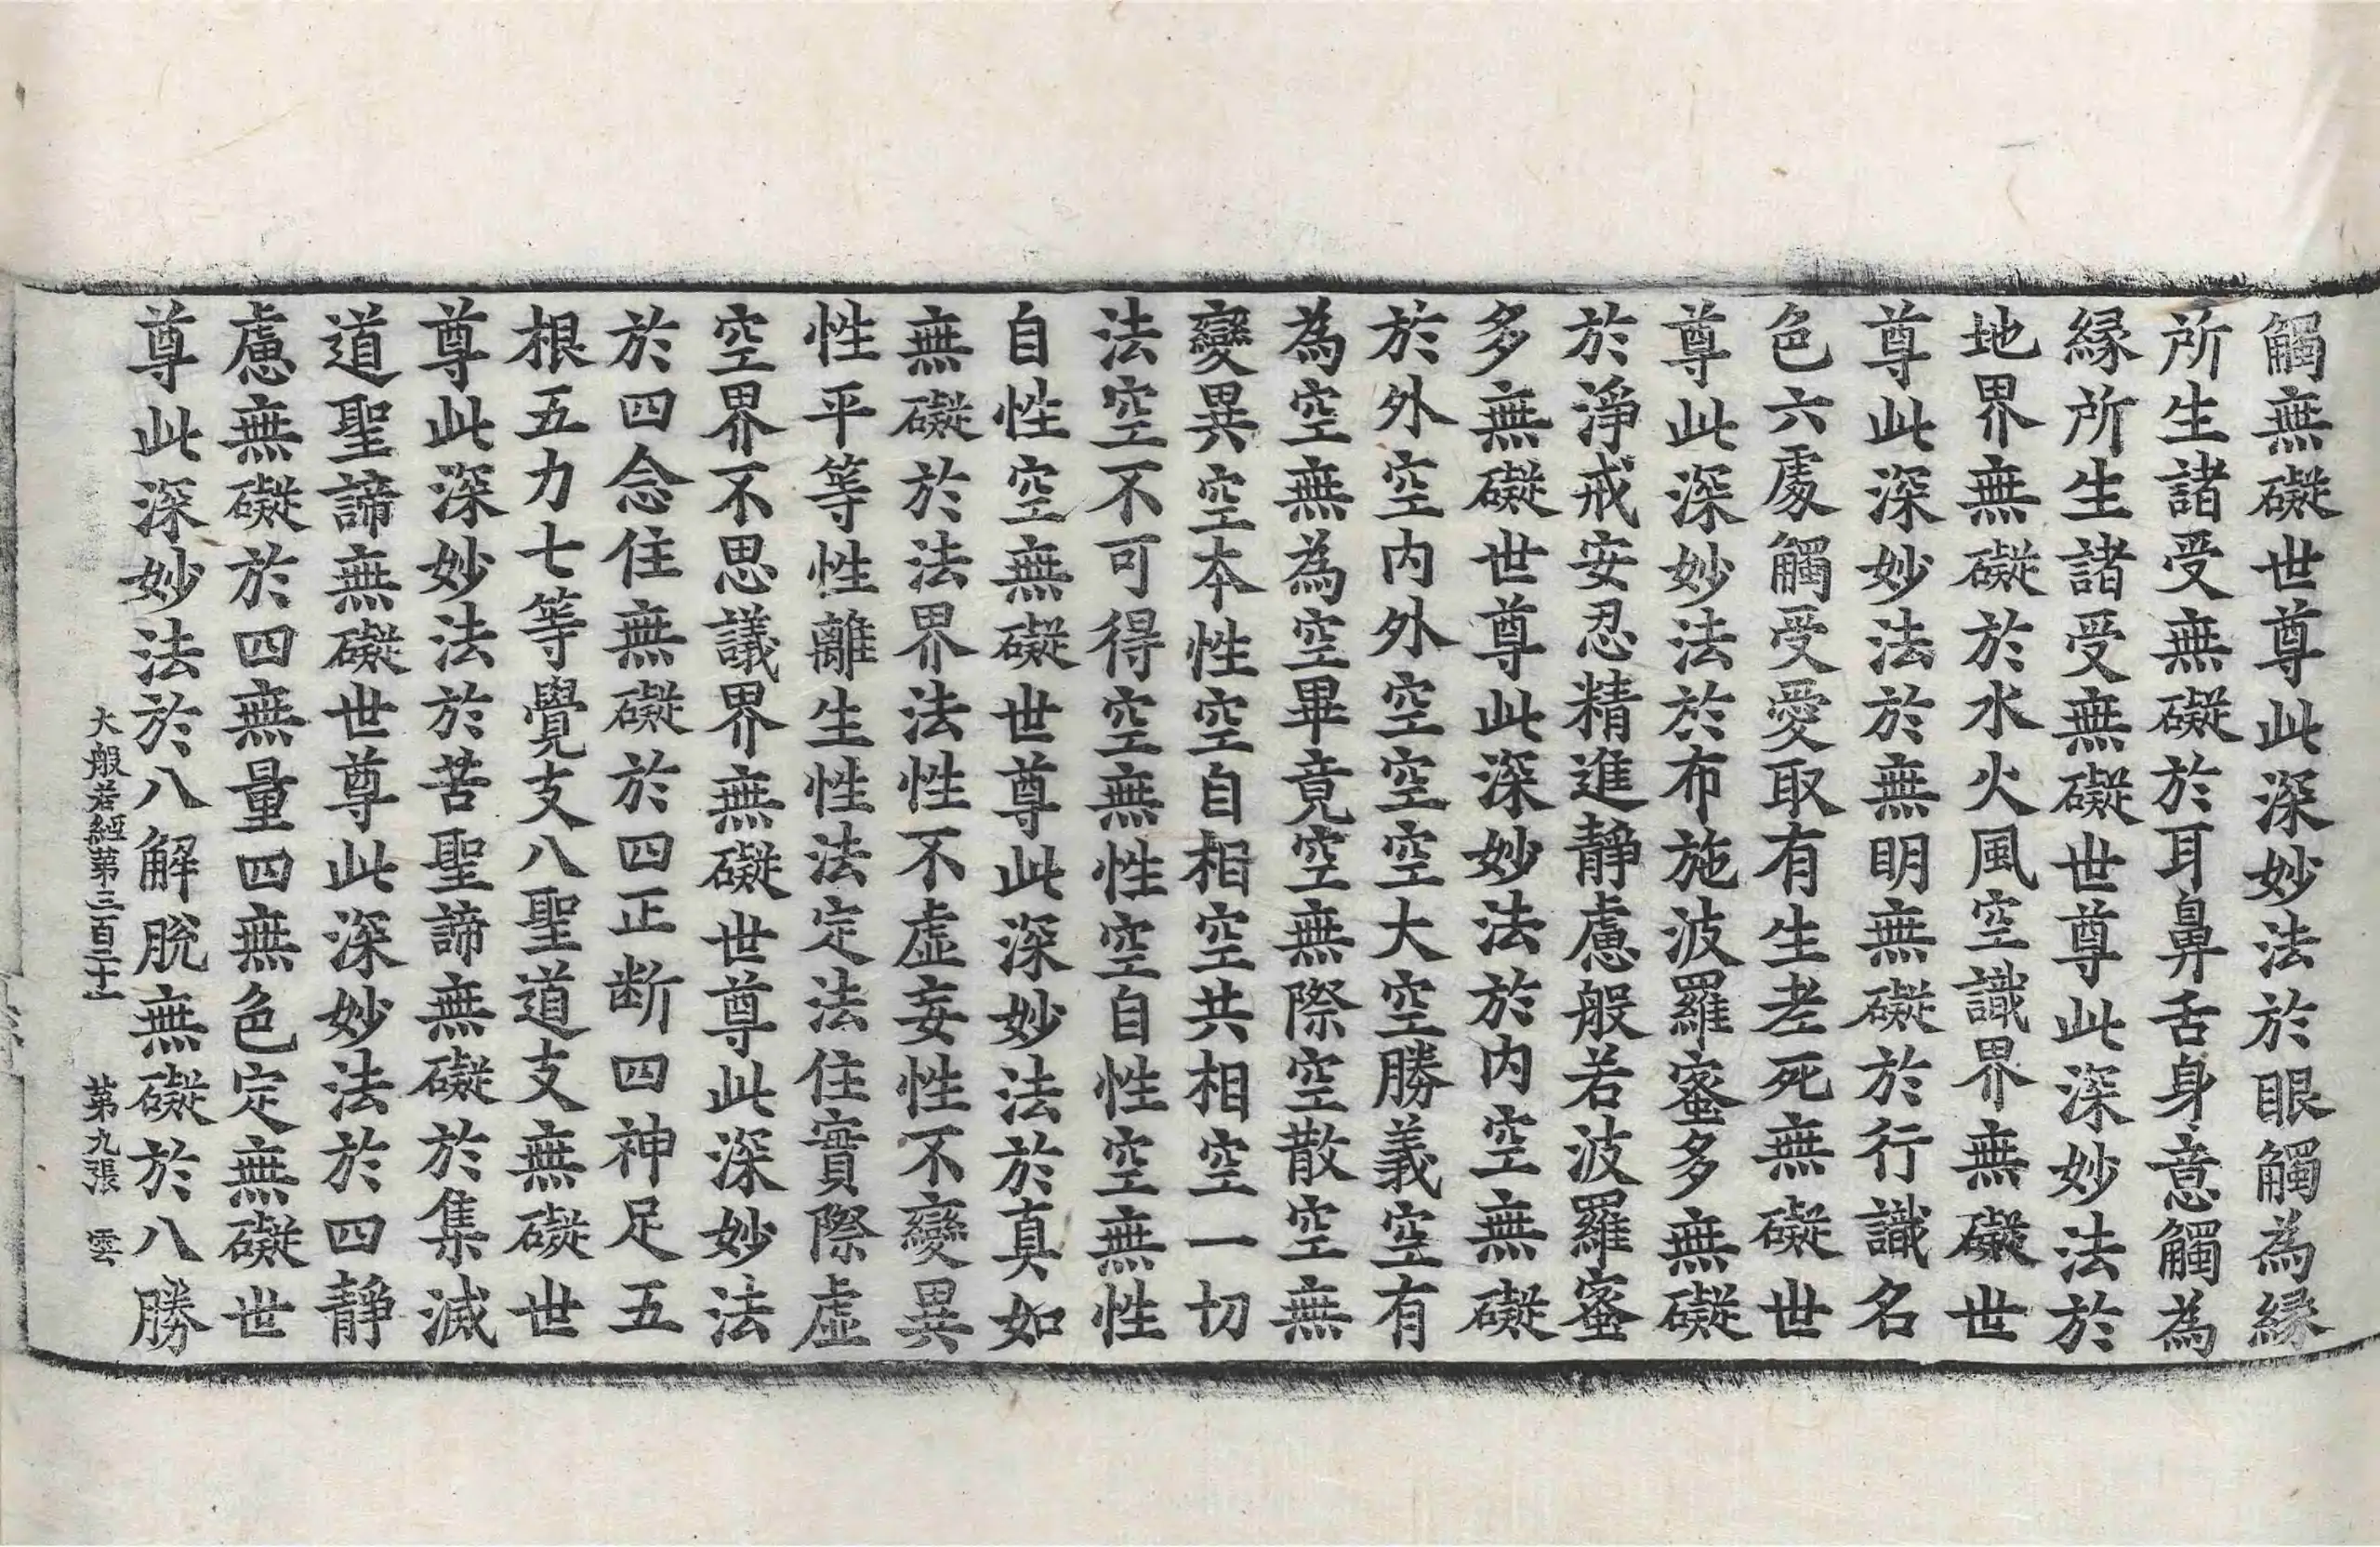 觸無礙世尊此深妙法於眼觸為緣
所生諸受無礙於耳鼻舌身意觸為
緣所生諸受無礙世尊此深妙法於
地界無礙於水火風空識界無礙世
尊此深妙法於無明無礙於行識名
色六處觸受愛取有生老死無礙世
尊此深妙法於布施波羅蜜多無礙
於淨戒安忍精進靜慮般若波羅蜜
多無礙世尊此深妙法於內空無礙
於外空內外空空空大空勝義空有
為空無為空畢竟空無際空散空無
變異空本性空自相空共相空一切
法空不可得空無性空自性空無性
自性空無礙世尊此深妙法於真如
無礙於法界法性不虛妄性不變異
性平等性離生性法定法住實際虛
空界不思議界無礙世尊此深妙法
於四念住無礙於四正断四神足五
根五力七等覺支八聖道支無礙世
尊此深妙法於苦聖諦無礙於集滅
道聖諦無礙世尊此深妙法於四靜
慮無礙於四無量四無色定無礙世
尊此深妙法於八解脫無礙於八勝
大般若經第三百二十一 第九張 雲